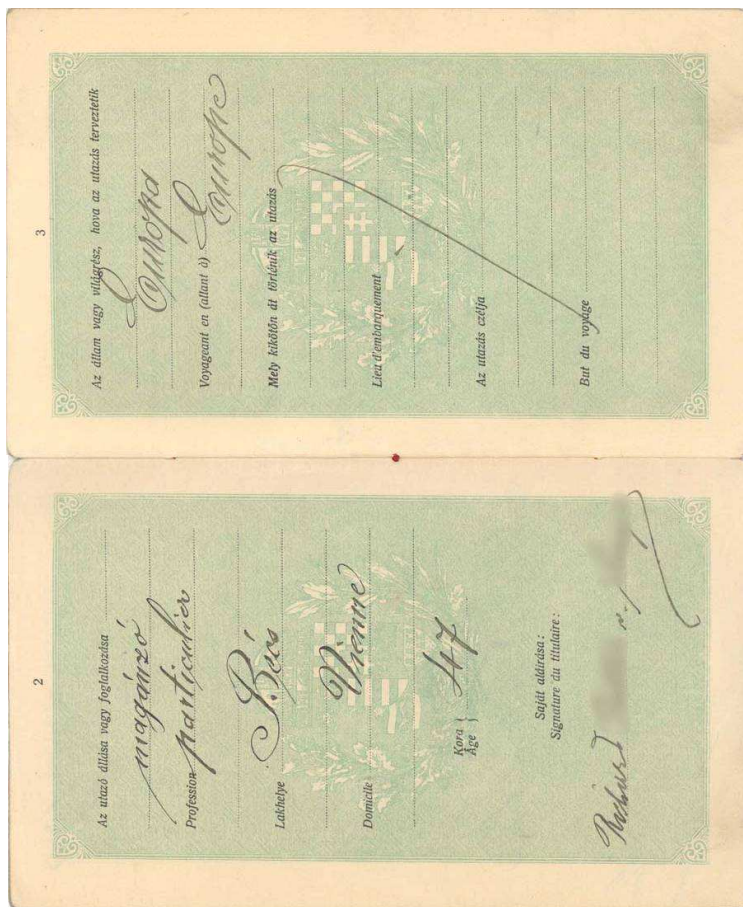 2
Az utazó állása vagy foglalkozása
magánzó
Profession particulier
Lakhelye
Bécs
Domicile
Vienne
Kora
Age
47
Saját aláírása:
Signature du titulaire:
3
Az állam vagy világrész, hova az utazás terveztetik
Európa
Voyageant en (allant à)
Europe
Mely kikötőn át történik az utazás
Lieu d'embarquement
Az utazás czélja
But du voyage